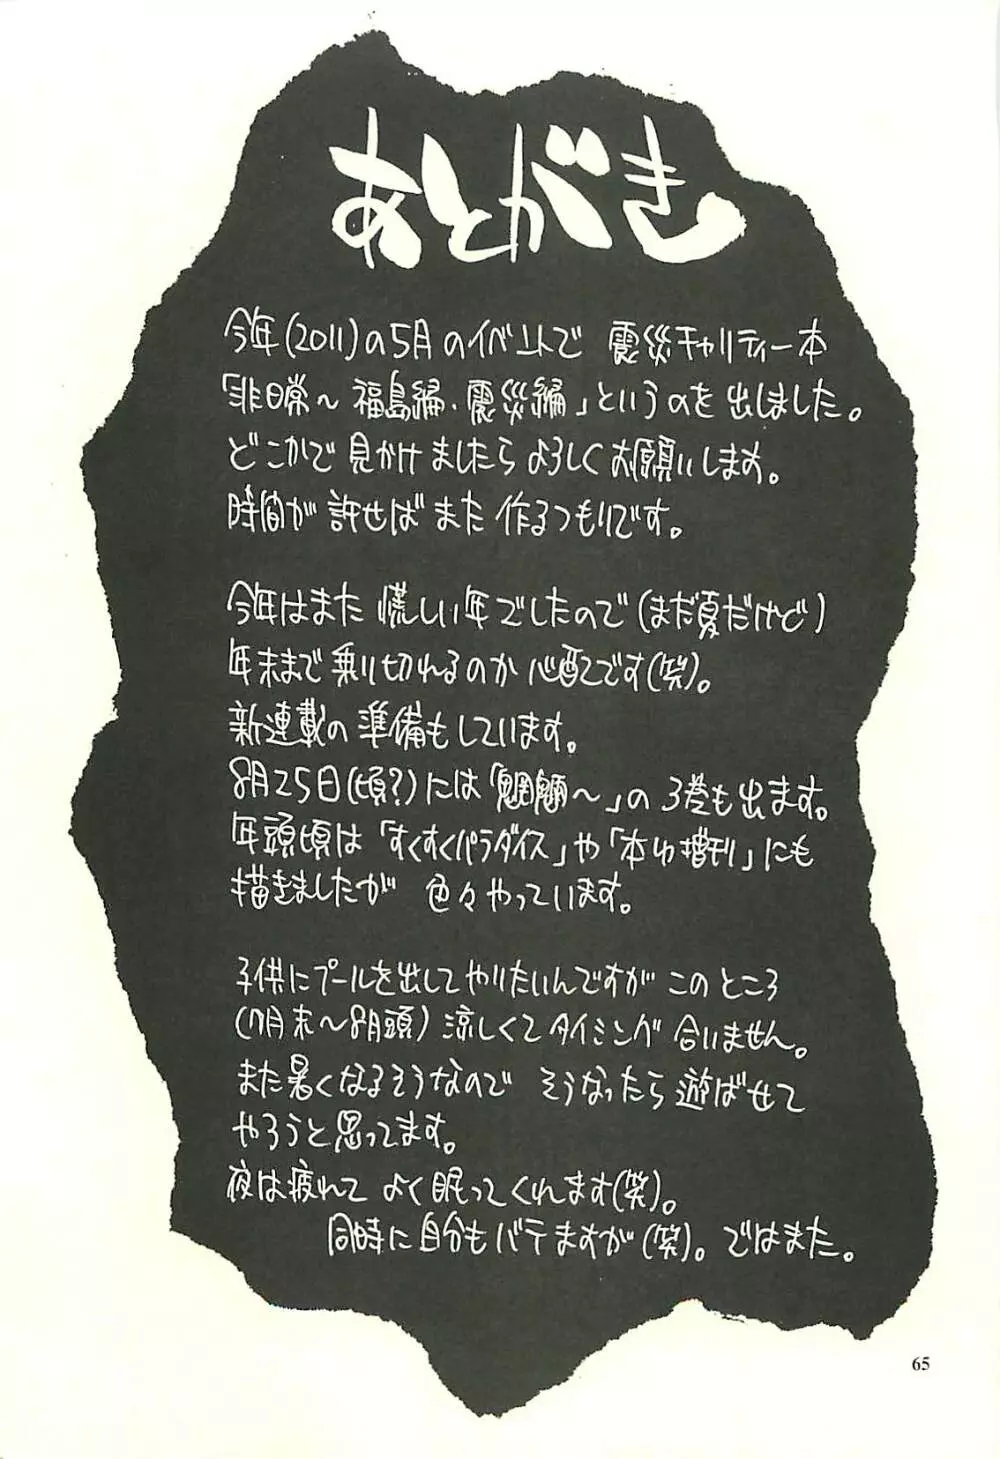 あとがき
今年(2011)の5月のイベントで 震災チャリティー本
「非日常～福島編・震災編」というのを出しました。
どこかで見かけましたらよろしくお願いします。
時間が許せばまた作るつもりです。
今年はまた慌しい年でしたので(まだ夏だけど)
年末まで乗り切れるのか心配です(笑)。
新連載の準備もしています。
8月25日(頃?)には「魍魎～」の3巻も出ます。
年頭頃は「すくすくパラダイス」や「本ゆ増刊」にも
描きましたが 色々やっています。
子供にプールを出してやりたいんですがこのところ
(7月末～8月頭)涼しくてタイミング合いません。
また暑くなるそうなので そうなったら遊ばせて
やろうと思ってます。
夜は疲れてよく眠ってくれます(笑)。
同時に自分もバテますが(笑)。ではまた。
65